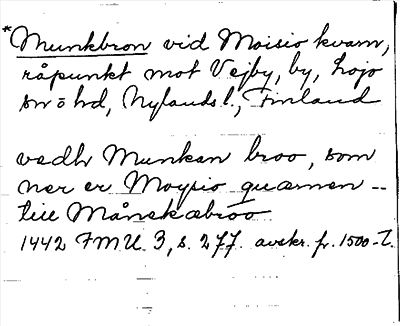 *Munkbron vid Moisio kvarn,
råpunkt mot Vejby, by, Lojo
sn o hd, Nylands l., Finland
vedh Munkan broo, som
ner er Moysio quærnen --
till Månskabroo
1442 FMU 3, s. 277. avskr. fr. 1500-t.